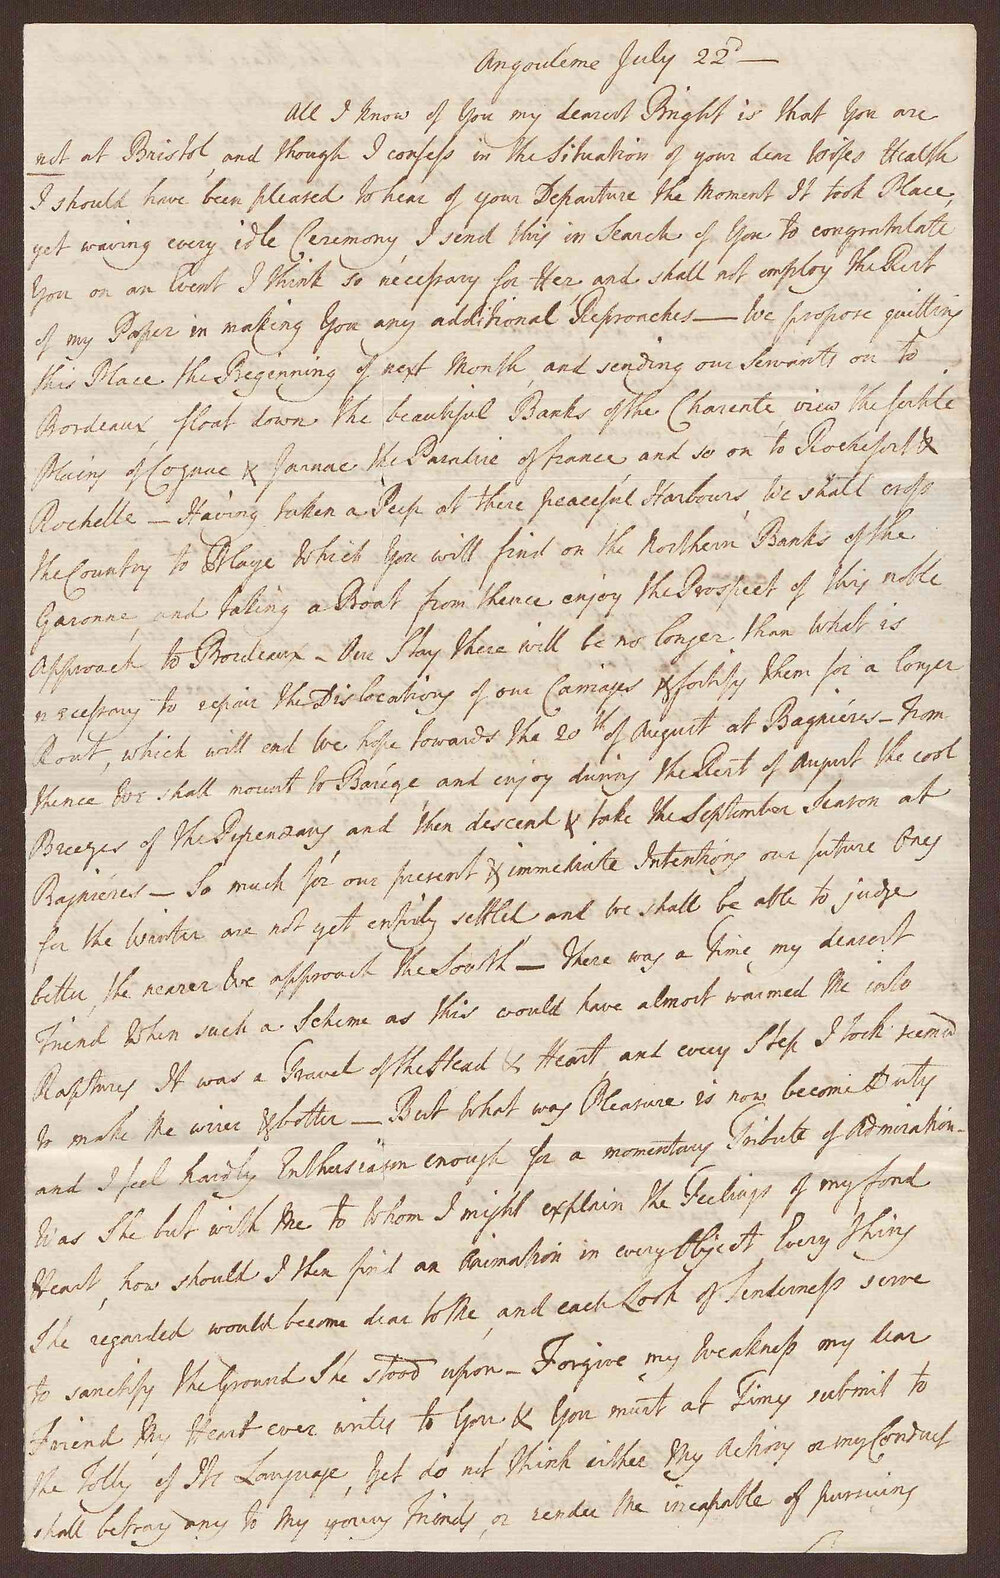 Angouleme July 22d —
All I know of You my dearest Bright is that You are
not at Bristol, and though I confess in the Situation of your dear Wifes Health
I should have been pleased to hear of your Departure the Moment It took Place,
yet waving every idle Ceremony, I send this in Search of You to congratulate
You on an Event I think so necessary for Her and shall not employ the Rest
of my Paper in making You any additional Reproaches — We propose quitting
this Place the Beginning of next Month, and sending our Servants on to
Bordeaux, float down the beautiful Banks of the Charente, view the fertile
Plains of Cognac & Jarnac the Paradise of france and so on to Rochefort &
Rochelle — Having taken a Peep at these peaceful Harbours, We shall cross
the Country to Blaye which You will find on the Northern Banks of the
Garonne, and taking a Boat from thence enjoy the Prospect of this noble
Approach to Bordeaux — Our Stay there will be no longer than what is
necessary to repair the Dislocations of our Carriages & fortify them for a longer
Rout, which will end We hope towards the 20th of August at Bagniéres — From
thence We shall mount to Barége and enjoy during the Rest of August the cool
Breezes of the Pyreneans and then descend & take the September Season at
Bagniéres — So much for our present & immediate Intentions, our future Ones
for the Winter are not yet entirely settled, and We shall be able to judge
better, the nearer We approach the South — There was a Time, my dearest
Friend when such a Scheme as this would have almost warmed Me into
Raptures. It was a Travel of the Head & Heart, and every Step I took seem'd
to make Me wiser & better — But what was Pleasure is now become Duty
and I feel hardly Enthusiasm enough for a momentary Tribute of Admiration —
Was She but with Me to whom I might explain the Feelings of my fond
Heart, how should I then find an Animation in every Object. Every Thing
She regarded would become dear to Me, and each Look of Tenderness serve
to sanctify the Ground She stood upon — Forgive my Weakness my dear
Friend My Heart ever writes to You, & You must at Times submit to
the Folly of Its Language, Yet do not think either My Actions or my Conduct
shall betray any to My young Friends, or render Me incapable of pursuing